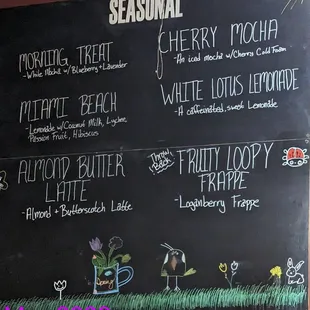 SEASONAL
MORNING TREAT
- White Mocha w/ Blueberry + Lavender
CHERRY MOCHA
- An iced mocha w/ Cherry Cold Foam
MIAMI BEACH
- Lemonade w/ Coconut Milk, Lychee,
Passion Fruit, Hibiscus
WHITE LOTUS LEMONADE
- A caffeinated, sweet Lemonade
ALMOND BUTTER
LATTE
- Almond + Butterscotch Latte
Throw
Back
FRUITY LOOPY
FRAPPE
- Loganberry Frappe